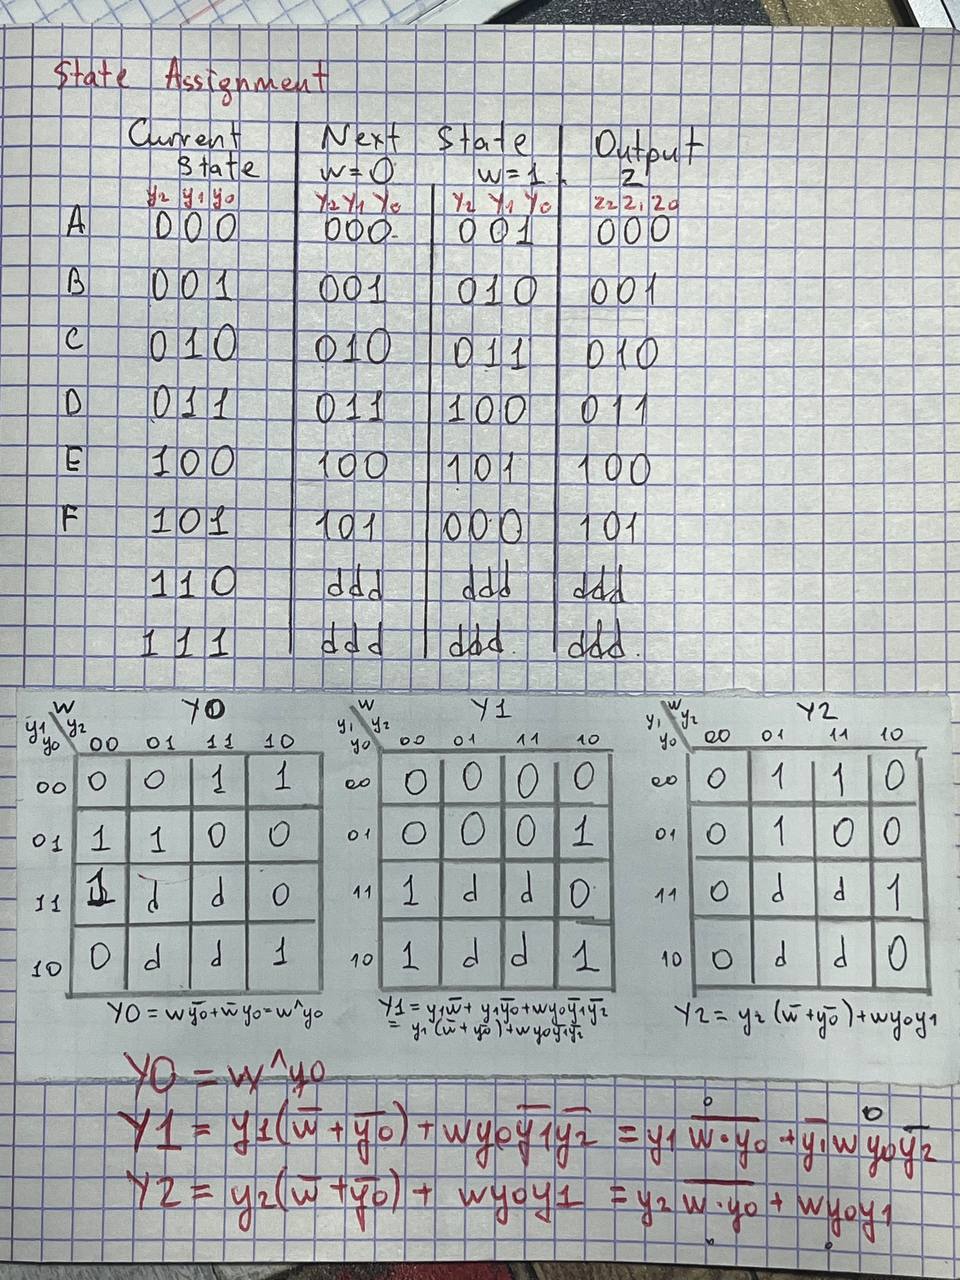 State Assignment
Current State | Next State | Output
w=0 w=1 z
y2 y1 y0 | Y2 Y1 Y0 | Y2 Y1 Y0 | z2 z1 z0
A 000 | 000 | 001 | 000
B 001 | 001 | 010 | 001
C 010 | 010 | 011 | 010
D 011 | 011 | 100 | 011
E 100 | 100 | 101 | 100
F 101 | 101 | 000 | 101
110 | ddd | ddd | ddd
111 | ddd | ddd | ddd
Y0
w y2
y1 y0
00 01 11 10
00 0 0 1 1
01 1 1 0 0
11 1 d d 0
10 0 d d 1
Y0 = wȳ0+w̄y0=w^y0
Y1
w y2
y1 y0
00 01 11 10
00 0 0 0 0
01 0 0 0 1
11 1 d d 0
10 1 d d 1
Y1 = y1w̄+ y1ȳ0+wy0ȳ1ȳ2
= y1(w̄+ȳ0)+wy0ȳ1ȳ2
Y2
w y2
y1 y0
00 01 11 10
00 0 1 1 0
01 0 1 0 0
11 0 d d 1
10 0 d d 0
Y2 = y2 (w̄+ȳ0)+wy0y1
Y0 = w^y0
Y1 = y1(w̄+ȳ0)+wy0ȳ1ȳ2 = y1 w̅·̅y̅0̅ +ȳ1wy0ȳ2
Y2 = y2(w̄+ȳ0)+ wy0y1 = y2 w̅·̅y̅0̅ + wy0y1